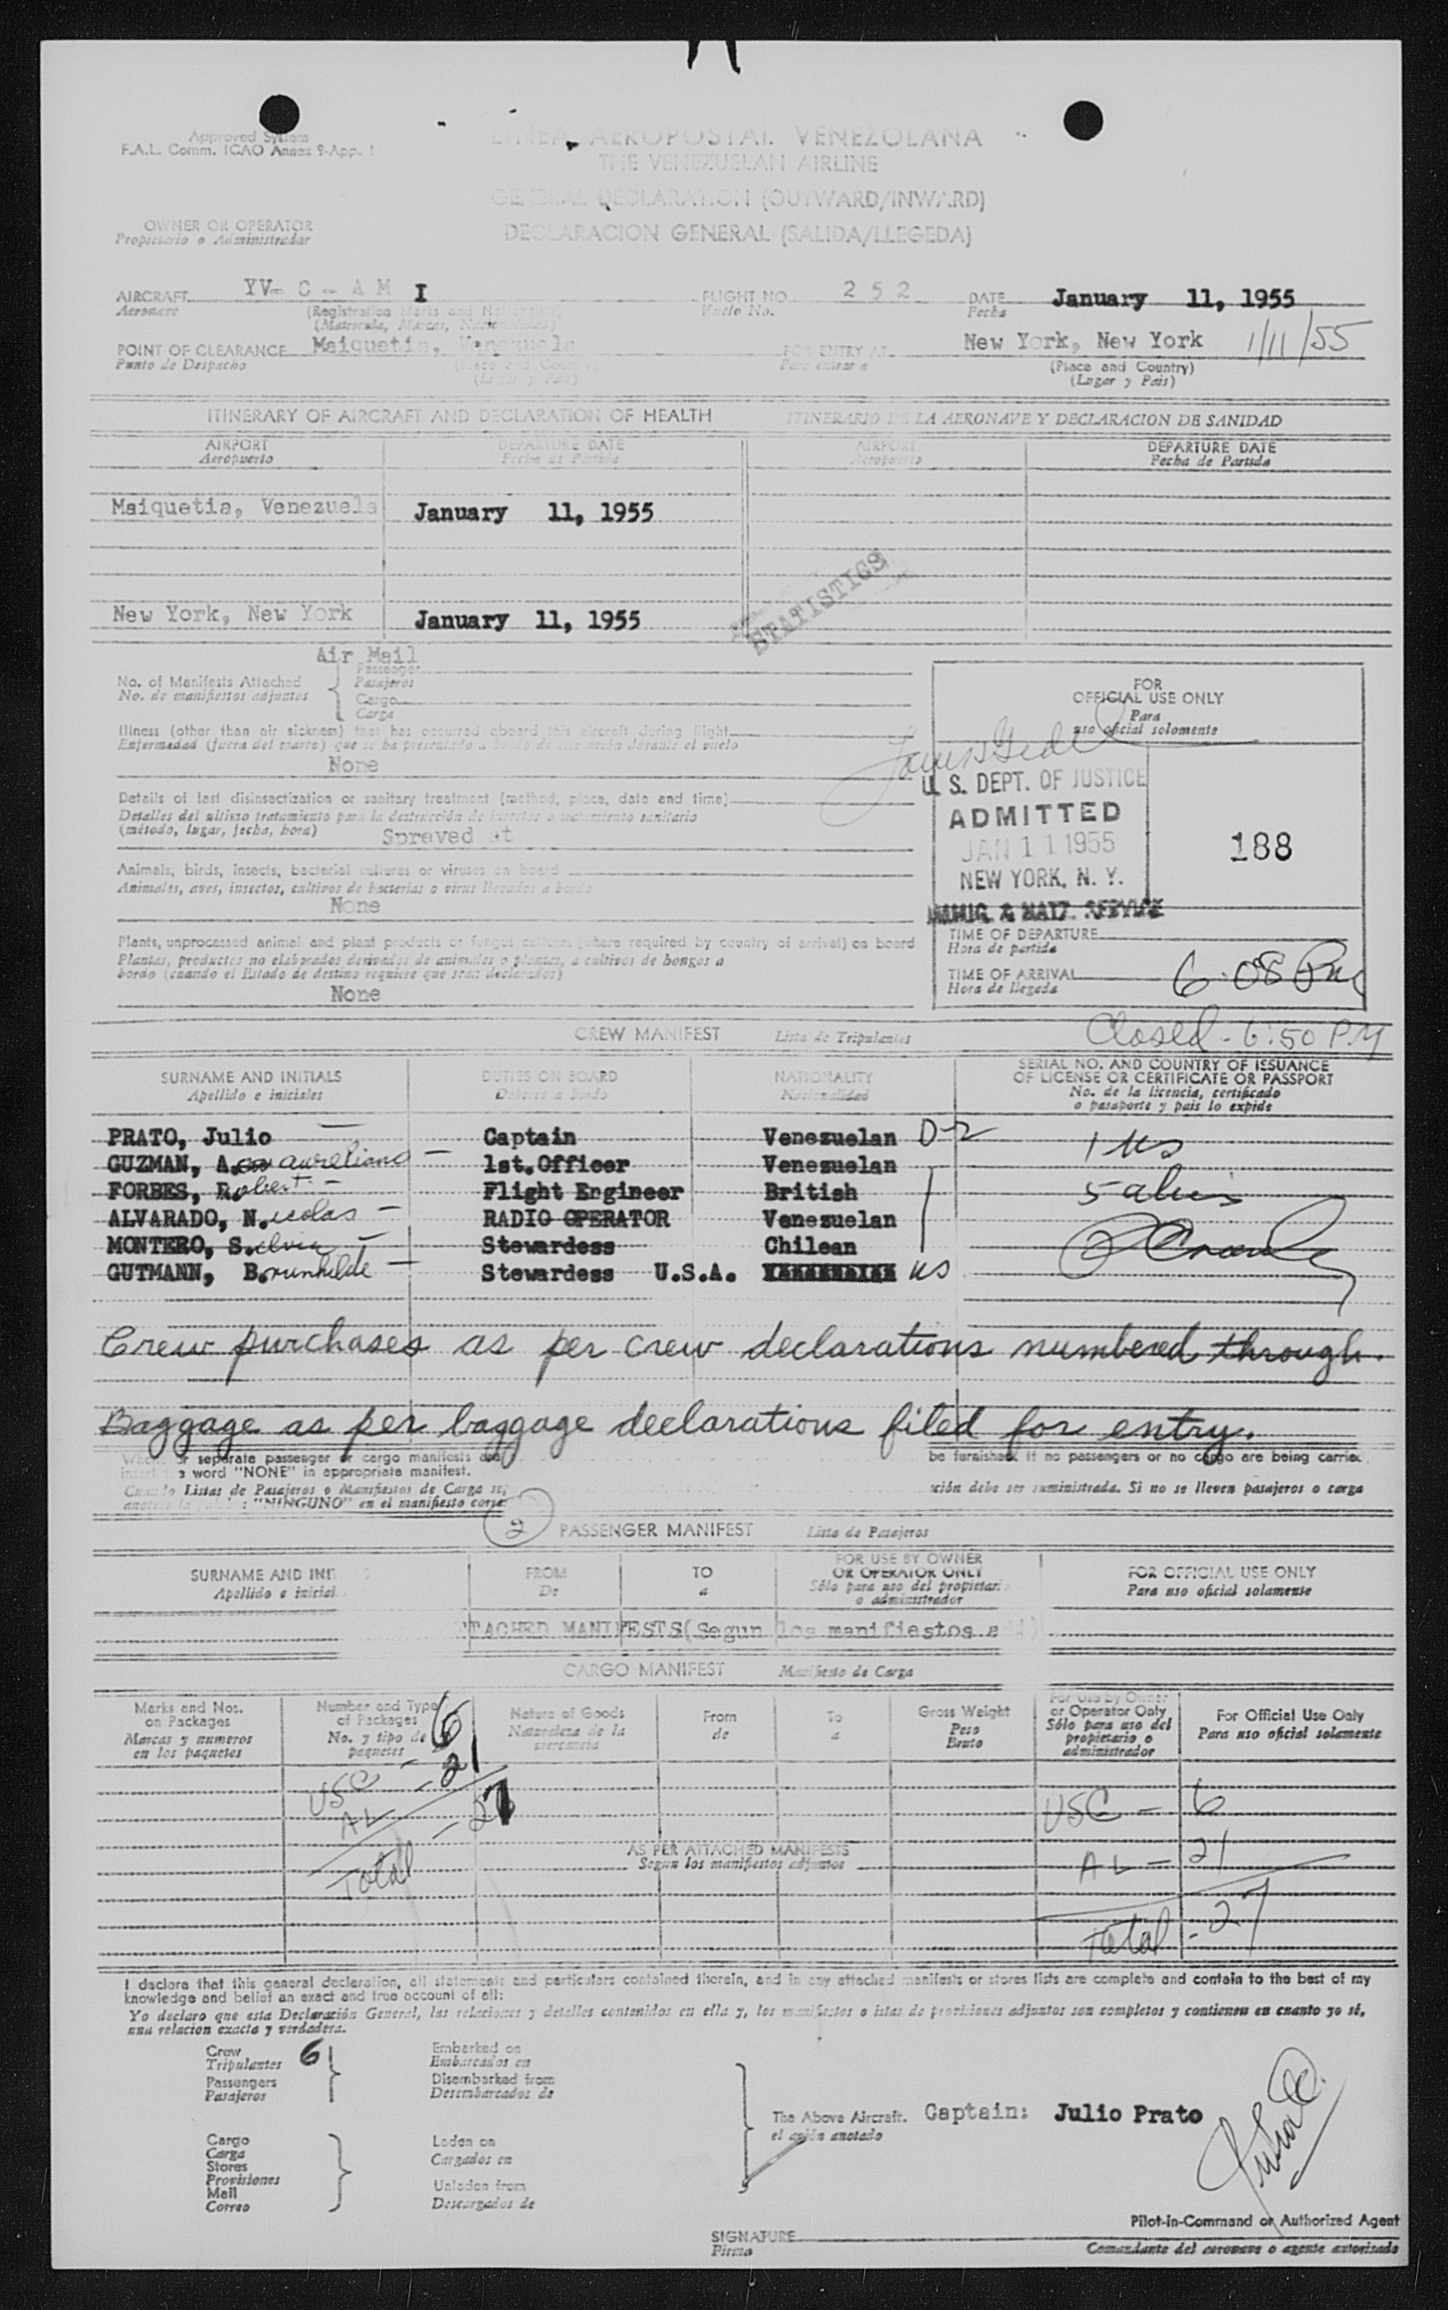 Approved System
F.A.L. Comm. ICAO Annex 9-App. 1
LINEA AEROPOSTAL VENEZOLANA
THE VENEZUELAN AIRLINE
GENERAL DECLARATION (OUTWARD/INWARD)
DECLARACION GENERAL (SALIDA/LLEGEDA)
OWNER OR OPERATOR
Propietario o Administrador
AIRCRAFT YV-C-AM I FLIGHT NO. 252 DATE January 11, 1955
Aeronave (Registration Marks and Nationality) Vuelo No. Fecha
(Matricula, Marcas, Nacionalidad)
POINT OF CLEARANCE Maiquetia, Venezuela FOR ENTRY AT New York, New York 1/11/55
Punto de Despacho (Place and Country) Para entrar a (Place and Country)
(Lugar y Pais) (Lugar y Pais)
ITINERARY OF AIRCRAFT AND DECLARATION OF HEALTH ITINERARIO DE LA AERONAVE Y DECLARACION DE SANIDAD
AIRPORT DEPARTURE DATE AIRPORT DEPARTURE DATE
Aeropuerto Fecha de Partida Aeropuerto Fecha de Partida
Maiquetia, Venezuela January 11, 1955
STATISTICS
New York, New York January 11, 1955
Air Mail
No. of Manifests Attached Passenger
No. de manifiestos adjuntos Pasajeros
Cargo
Carga
FOR
OFFICIAL USE ONLY
Para
uso oficial solomente
Illness (other than air sickness) that has occurred aboard this aircraft during flight
Enfermedad (fuera del mareo) que se ha presentado a bordo de durante el vuelo
None
Details of last disinsectization or sanitary treatment (method, place, date and time)
Detalles del ultimo tratamiento para la destrucción de insectos o tratamiento sanitario
(método, lugar, fecha, hora) Sprayed at
U. S. DEPT. OF JUSTICE
ADMITTED
JAN 11 1955
NEW YORK, N. Y.
IMMIG. & NATZ. SERVICE
188
Animals, birds, insects, bacterial cultures or viruses on board
Animales, aves, insectos, cultivos de bacterias o virus llevados a bordo
None
Plants, unprocessed animal and plant products or fungus cultures (where required by country of arrival) on board
Plantas, productos no elaborados derivados de animales o plantas, o cultivos de hongos a
bordo (cuando el Estado de destino requiere que sean declarados)
None
TIME OF DEPARTURE
Hora de partida
TIME OF ARRIVAL 6:08 PM
Hora de llegada
Closed - 6:50 P.M
CREW MANIFEST Lista de Tripulantes
SURNAME AND INITIALS DUTIES ON BOARD NATIONALITY SERIAL NO. AND COUNTRY OF ISSUANCE
OF LICENSE OR CERTIFICATE OR PASSPORT
Apellido e iniciales Deberes a bordo Nacionalidad No. de la licencia, certificado
o pasaporte y pais lo expide
PRATO, Julio Captain Venezuelan D-2 1 US
GUZMAN, A. aureliano 1st. Officer Venezuelan
FORBES, Robert Flight Engineer British 5 aliens
ALVARADO, N.icolas RADIO OPERATOR Venezuelan
MONTERO, S.elvia Stewardess Chilean
GUTMANN, B.runhilde Stewardess U.S.A. US
Crew purchases as per crew declarations numbered through.
Baggage as per baggage declarations filed for entry.
separate passenger or cargo manifests be furnished. If no passengers or no cargo are being carried,
insert the word "NONE" in appropriate manifest.
Cuando Listas de Pasajeros o Manifiestos de Carga ción debe ser suministrada. Si no se lleven pasajeros o carga
"NINGUNO" en el manifiesto
2 PASSENGER MANIFEST Lista de Pasajeros
SURNAME AND INIT FROM TO FOR USE BY OWNER
OR OPERATOR ONLY FOR OFFICIAL USE ONLY
Apellido e inicial De a Sólo para uso del propietario
o administrador Para uso oficial solamente
TACHED MANIFESTS (Segun los manifiestos a
CARGO MANIFEST Manifiesto de Carga
Marks and Nos.
on Packages
Marcas y numeros
en los paquetes
Number and Type
of Packages
No. y tipo de
paquetes
Nature of Goods
Naturaleza de la
mercancia
From
de
To
a
Gross Weight
Peso
Bruto
For Use By Owner
or Operator Only
Sólo para uso del
propietario o
administrador
For Official Use Only
Para uso oficial solamente
USC - 6
AL - 21
Total - 27
USC - 6
AL - 21
Total - 27
AS PER ATTACHED MANIFESTS
Segun los manifiestos adjuntos
I declare that this general declaration, all statements and particulars contained therein, and in any attached manifests or stores lists are complete and contain to the best of my
knowledge and belief an exact and true account of all:
Yo declaro que esta Declaración General, las relaciones y detalles contenidos en ella y, los manifiestos o istas de provisiones adjuntos son completos y contienen en cuanto yo sé,
una relacion exacta y verdadera.
Crew 6 Embarked on
Tripulantes Embarcados en
Passengers Disembarked from
Pasajeros Desembarcados de
The Above Aircraft. Captain: Julio Prato
el avión anotado
Cargo Laden on
Carga Cargados en
Stores
Provisiones Unladen from
Mail
Correo Descargados de
Pilot-in-Command or Authorized Agent
SIGNATURE
Firma Comandante del aeronave o agente autorizado